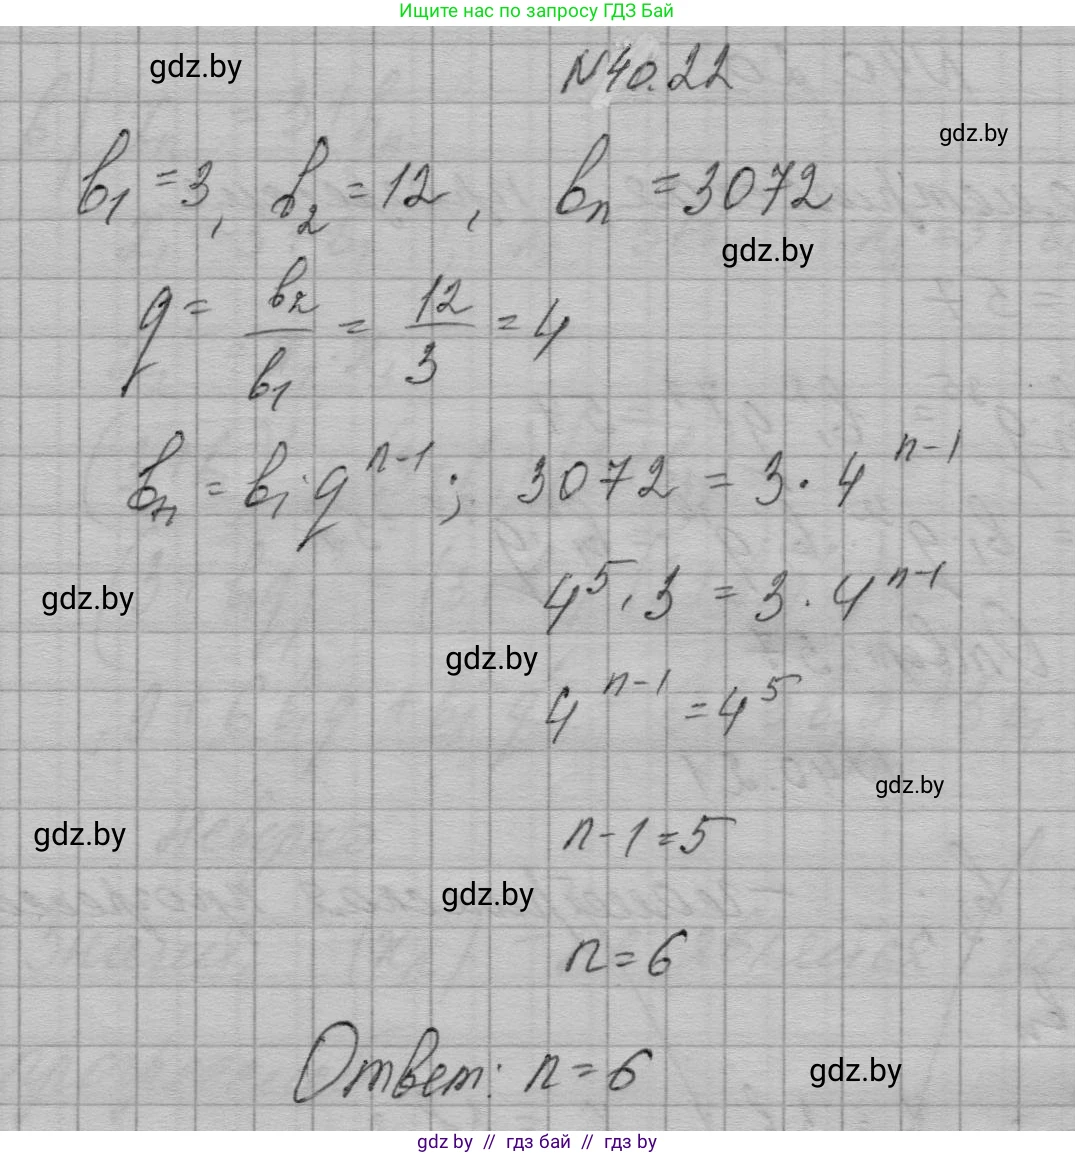 Ищите нас по запросу ГДЗ Бай
gdz.by
N40.22
gdz.by
b₁ = 3, b₂ = 12, bₙ = 3072
gdz.by
q = b₂/b₁ = 12/3 = 4
bₙ = b₁·qⁿ⁻¹; 3072 = 3·4ⁿ⁻¹
4⁵·3 = 3·4ⁿ⁻¹
gdz.by
gdz.by
4ⁿ⁻¹ = 4⁵
gdz.by
n-1=5
gdz.by
gdz.by
n=6
Ответ: n=6
gdz.by
gdz by // гдз бай // гдз by